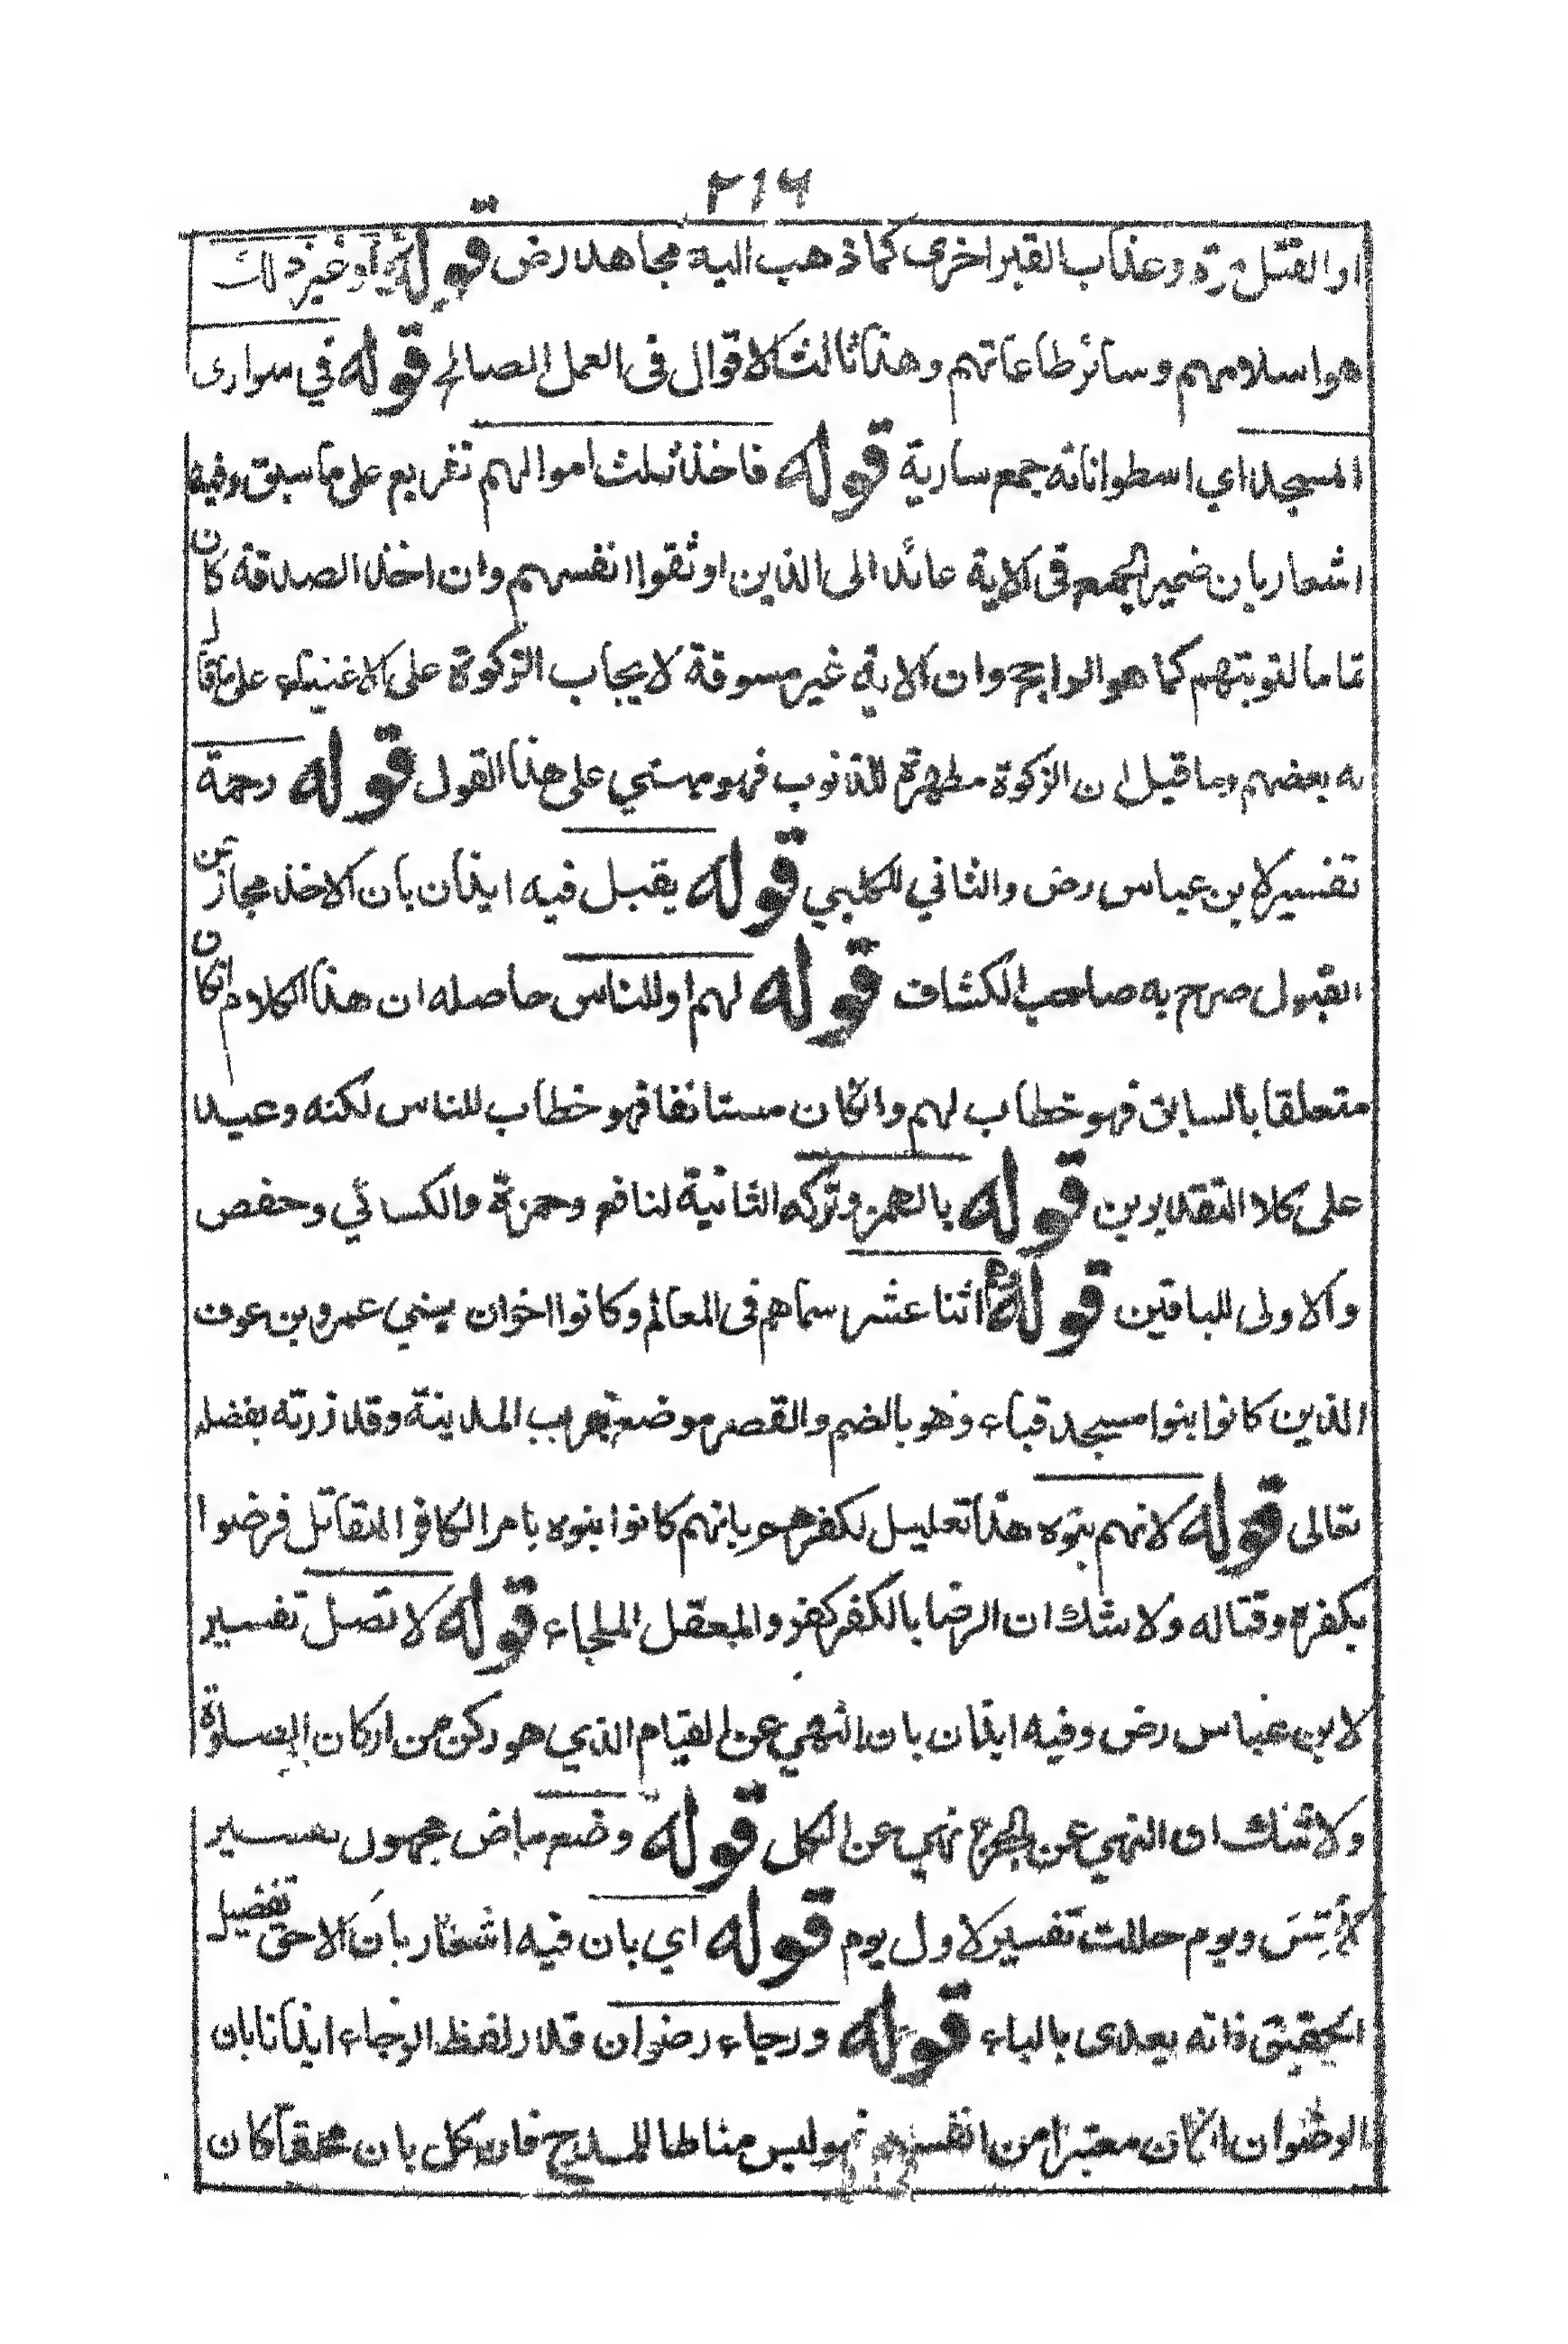 ٢١٦
او القتل مرة وعذاب القبر اخرى كما ذهب اليه مجاهد رض قوله او غير ذلك
هو اسلامهم وسائر طاعاتهم وهذا ثالث الاقوال فى العمل الصالح قوله في سوارى
المسجد اي اسطواناته جمع سارية قوله فاخذ ثلث اموالهم تفريع على ما سبق وفيه
اشعار بان ضمير الجمع فى الاية عائد الى الذين اوثقوا انفسهم وان اخذ الصدقة كان
تماما لتوبتهم كما هو الراجح وان الاية غير مسوقة لايجاب الزكوة على الاغنياء على ما قال
به بعضهم وما قيل ان الزكوة مطهرة للذنوب فهو مبتني على هذا القول قوله رحمة
تفسير لابن عباس رض والثاني للكلبي قوله يقبل فيه ايذان بان الاخذ مجاز عن
القبول صرح به صاحب الكشاف قوله لهم او للناس حاصله ان هذا الكلام انكان
متعلقا بالسابق فهو خطاب لهم وانكان مستانفا فهو خطاب للناس لكنه وعيد
على كلا التقديرين قوله بالهمز وتركه الثانية لنافع وحمزة والكسائي وحفص
والاولى للباقين قوله اثنا عشر سماهم فى المعالم وكانوا اخوان بينى عمرو بن عوف
الذين كانوا بنوا مسجد قباء وهو بالضم والقصر موضع بقرب المدينة وقد زرته بفضله
تعالى قوله لانهم بنوه هذا تعليل لكفرهم بانهم كانوا بنوه بامر الكافر المقاتل فرضوا
بكفره وقتاله ولا شك ان الرضا بالكفر كفر والمعقل الملجاء قوله لا تصل تفسير
لابن عباس رض وفيه ايذان بان النهي عن القيام الذي هو ركن من اركان الصلوة
ولا شك ان النهي عن الجزء نهي عن الكل قوله وضع ماض مجهول تفسير
لأسس ويوم حللت تفسير لاول يوم قوله اي بان فيه اشعار بان الاحق تفضيل
الحقيق ذاته يعدى بالباء قوله ورجاء رضوان قدر لفظ الرجاء ايذانا بان
الرضوان انكان معتبرا من انفسهم فهو ليس مناطا للمدح فان كل بان محقا كان